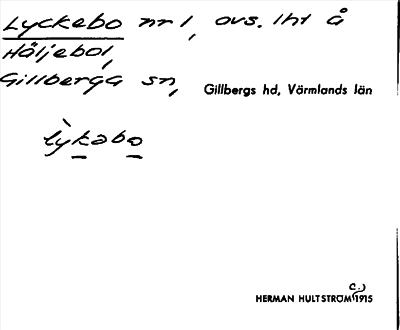 Lyckebo nr 1, avs. lht å
Häljebol,
Gillberga sn, Gillbergs hd, Värmlands län
lỳkəbo
HERMAN HULTSTRÖM (c.) 1915